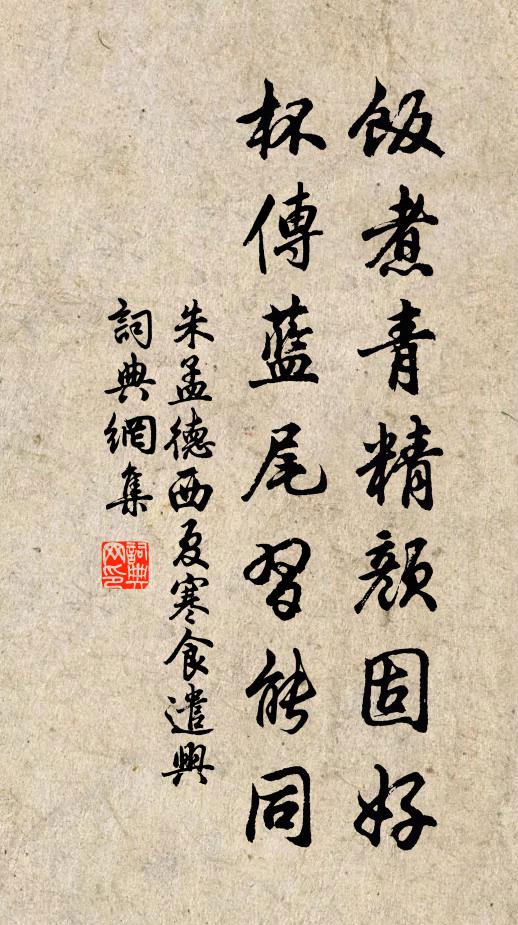 飯煮青精顏固好
杯傳藍尾習能同
朱孟德西夏寒食遣興
詞典網集
詞典
网印